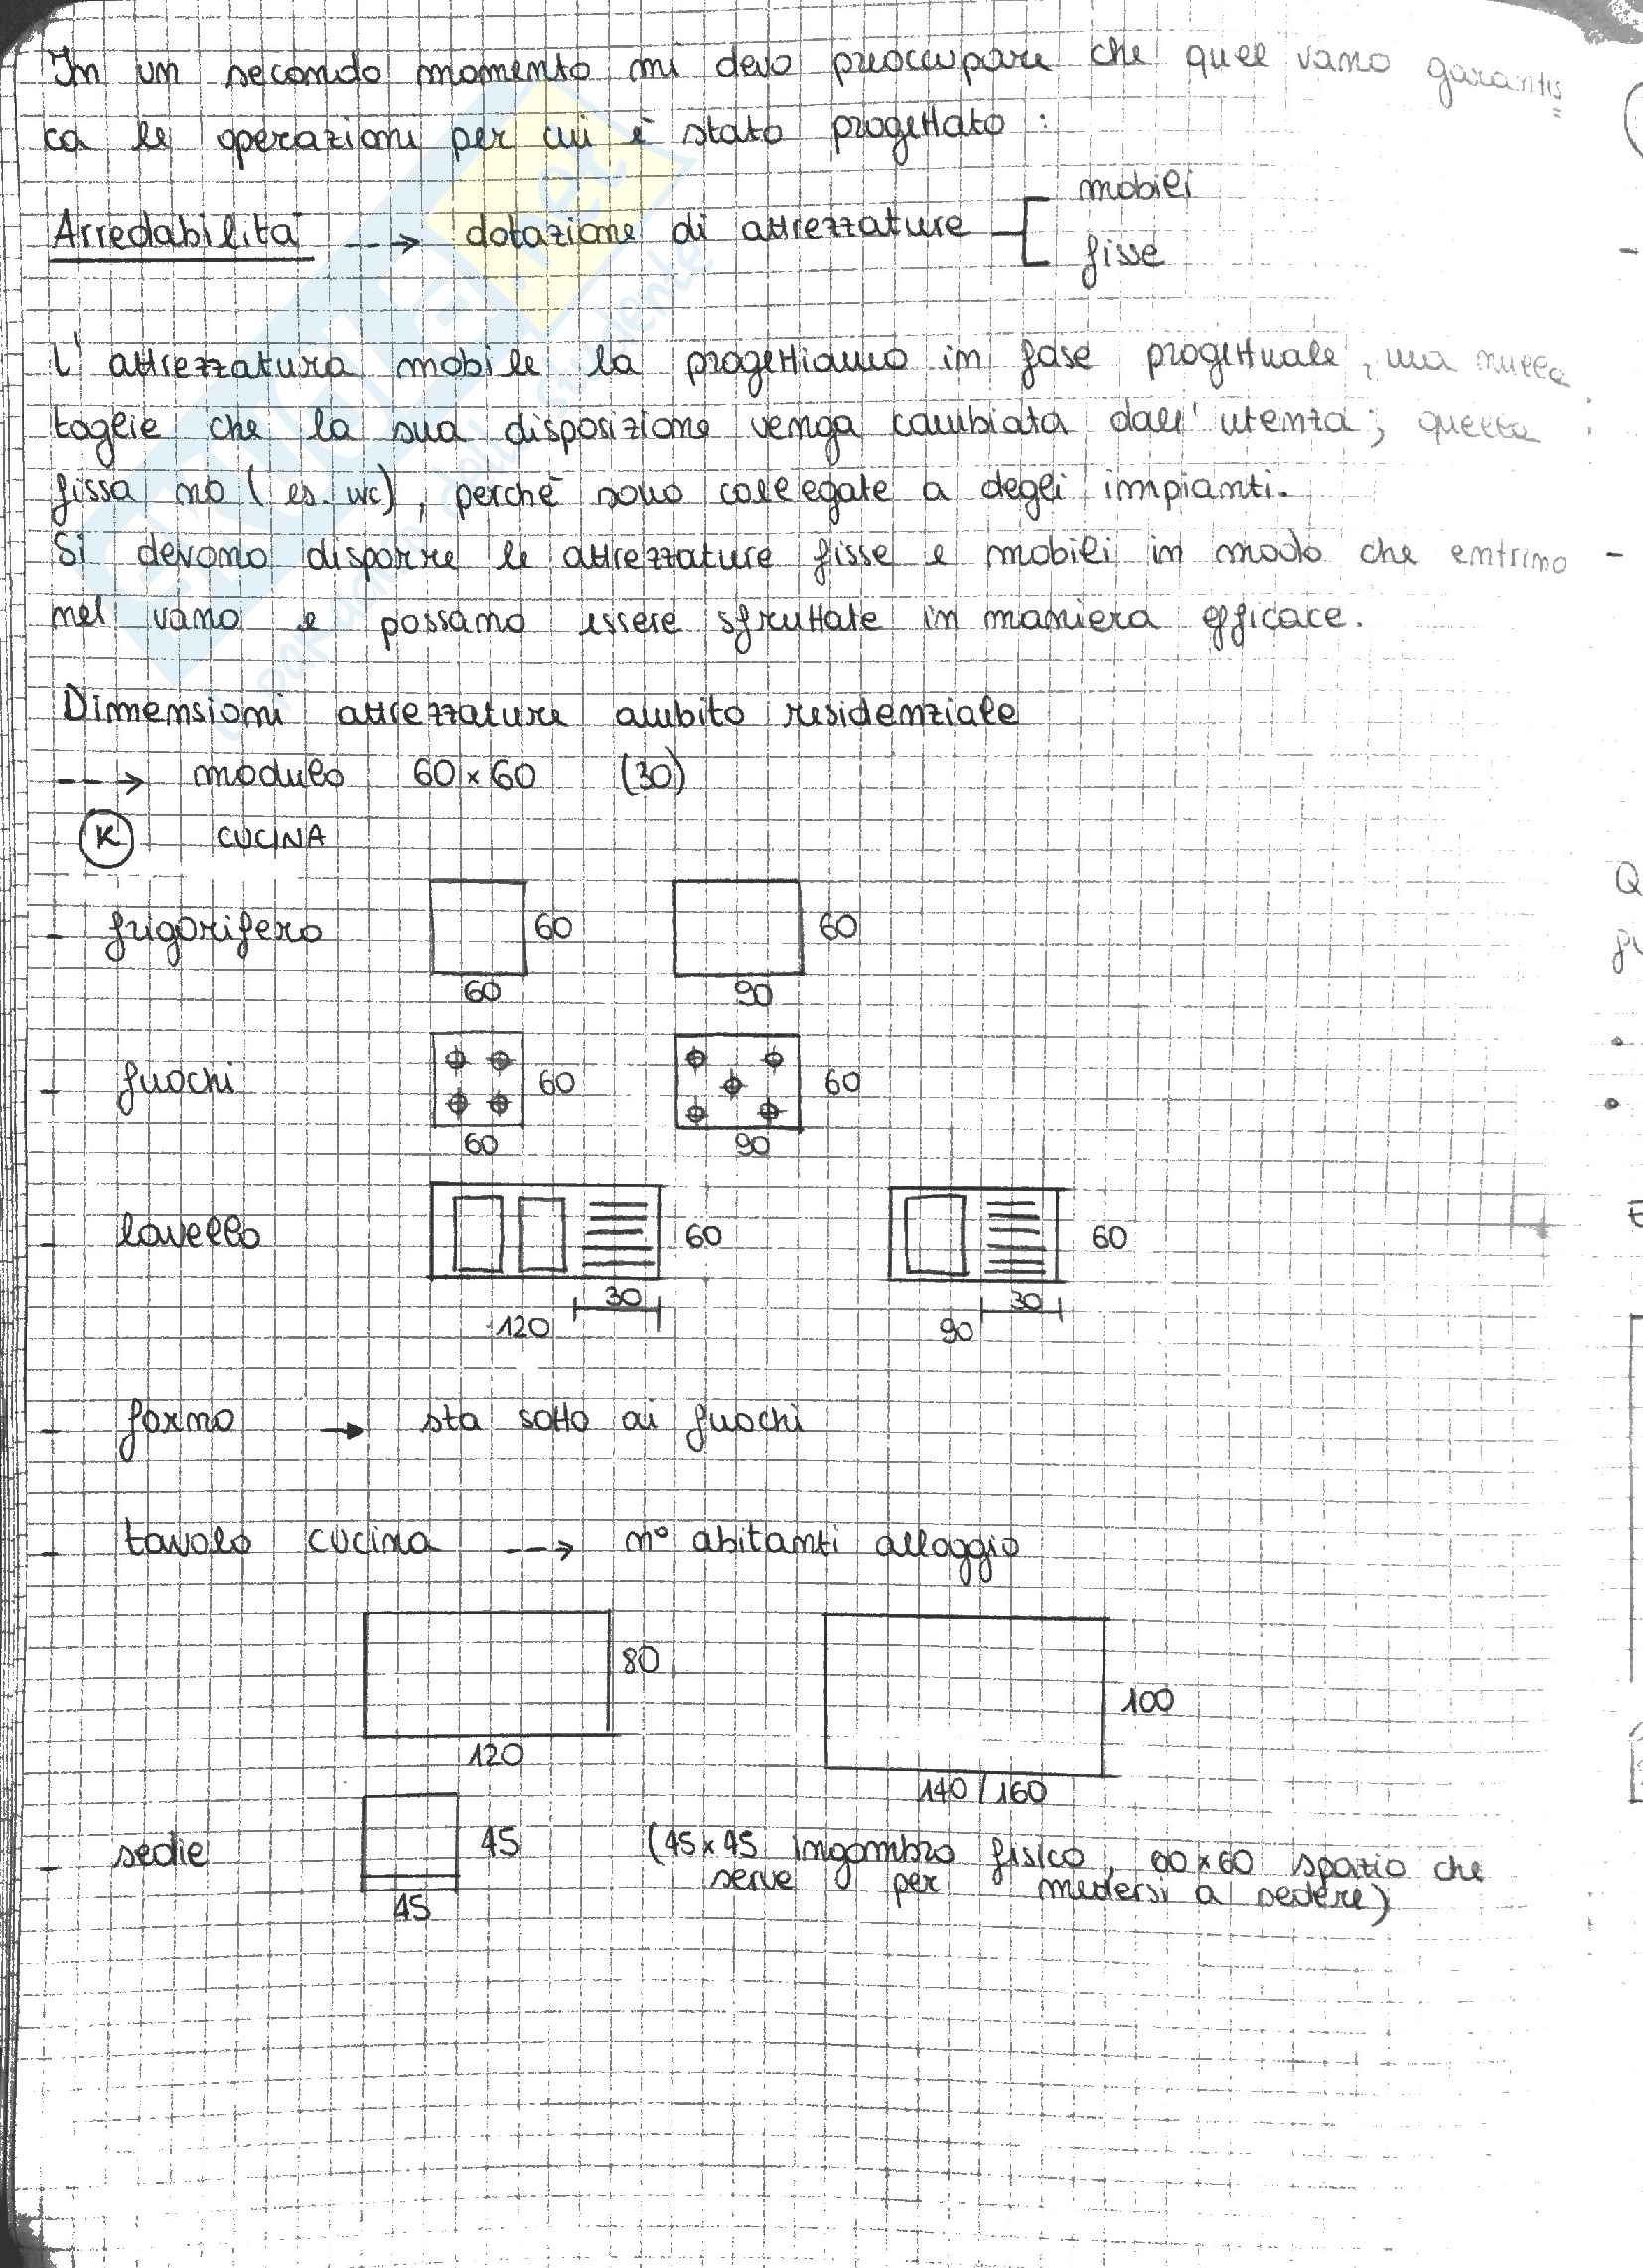 In un secondo momento mi devo preoccupare che quel vano garantis
ca le operazioni per cui è stato progettato :
Arredabilità ---> dotazione di attrezzature
mobili
fisse
L'attrezzatura mobile la progettiamo in fase progettuale, ma nulla
toglie che la sua disposizione venga cambiata dall'utenza; quella
fissa no (es. wc), perchè sono collegate a degli impianti.
Si devono disporre le attrezzature fisse e mobili in modo che entrino
nel vano e possano essere sfruttate in maniera efficace.
Dimensioni attrezzature ambito residenziale
---> modulo 60x60 (30)
K CUCINA
- frigorifero 60 60
60 90
- fuochi 60 60
60 90
- lavello 60 60
30 30
120 90
- forno → sta sotto ai fuochi
- tavolo cucina ---> n° abitanti alloggio
80
100
120
140/160
- sedie 45 (45x45 ingombro fisico, 60x60 spazio che
serve per mettersi a sedere)
45